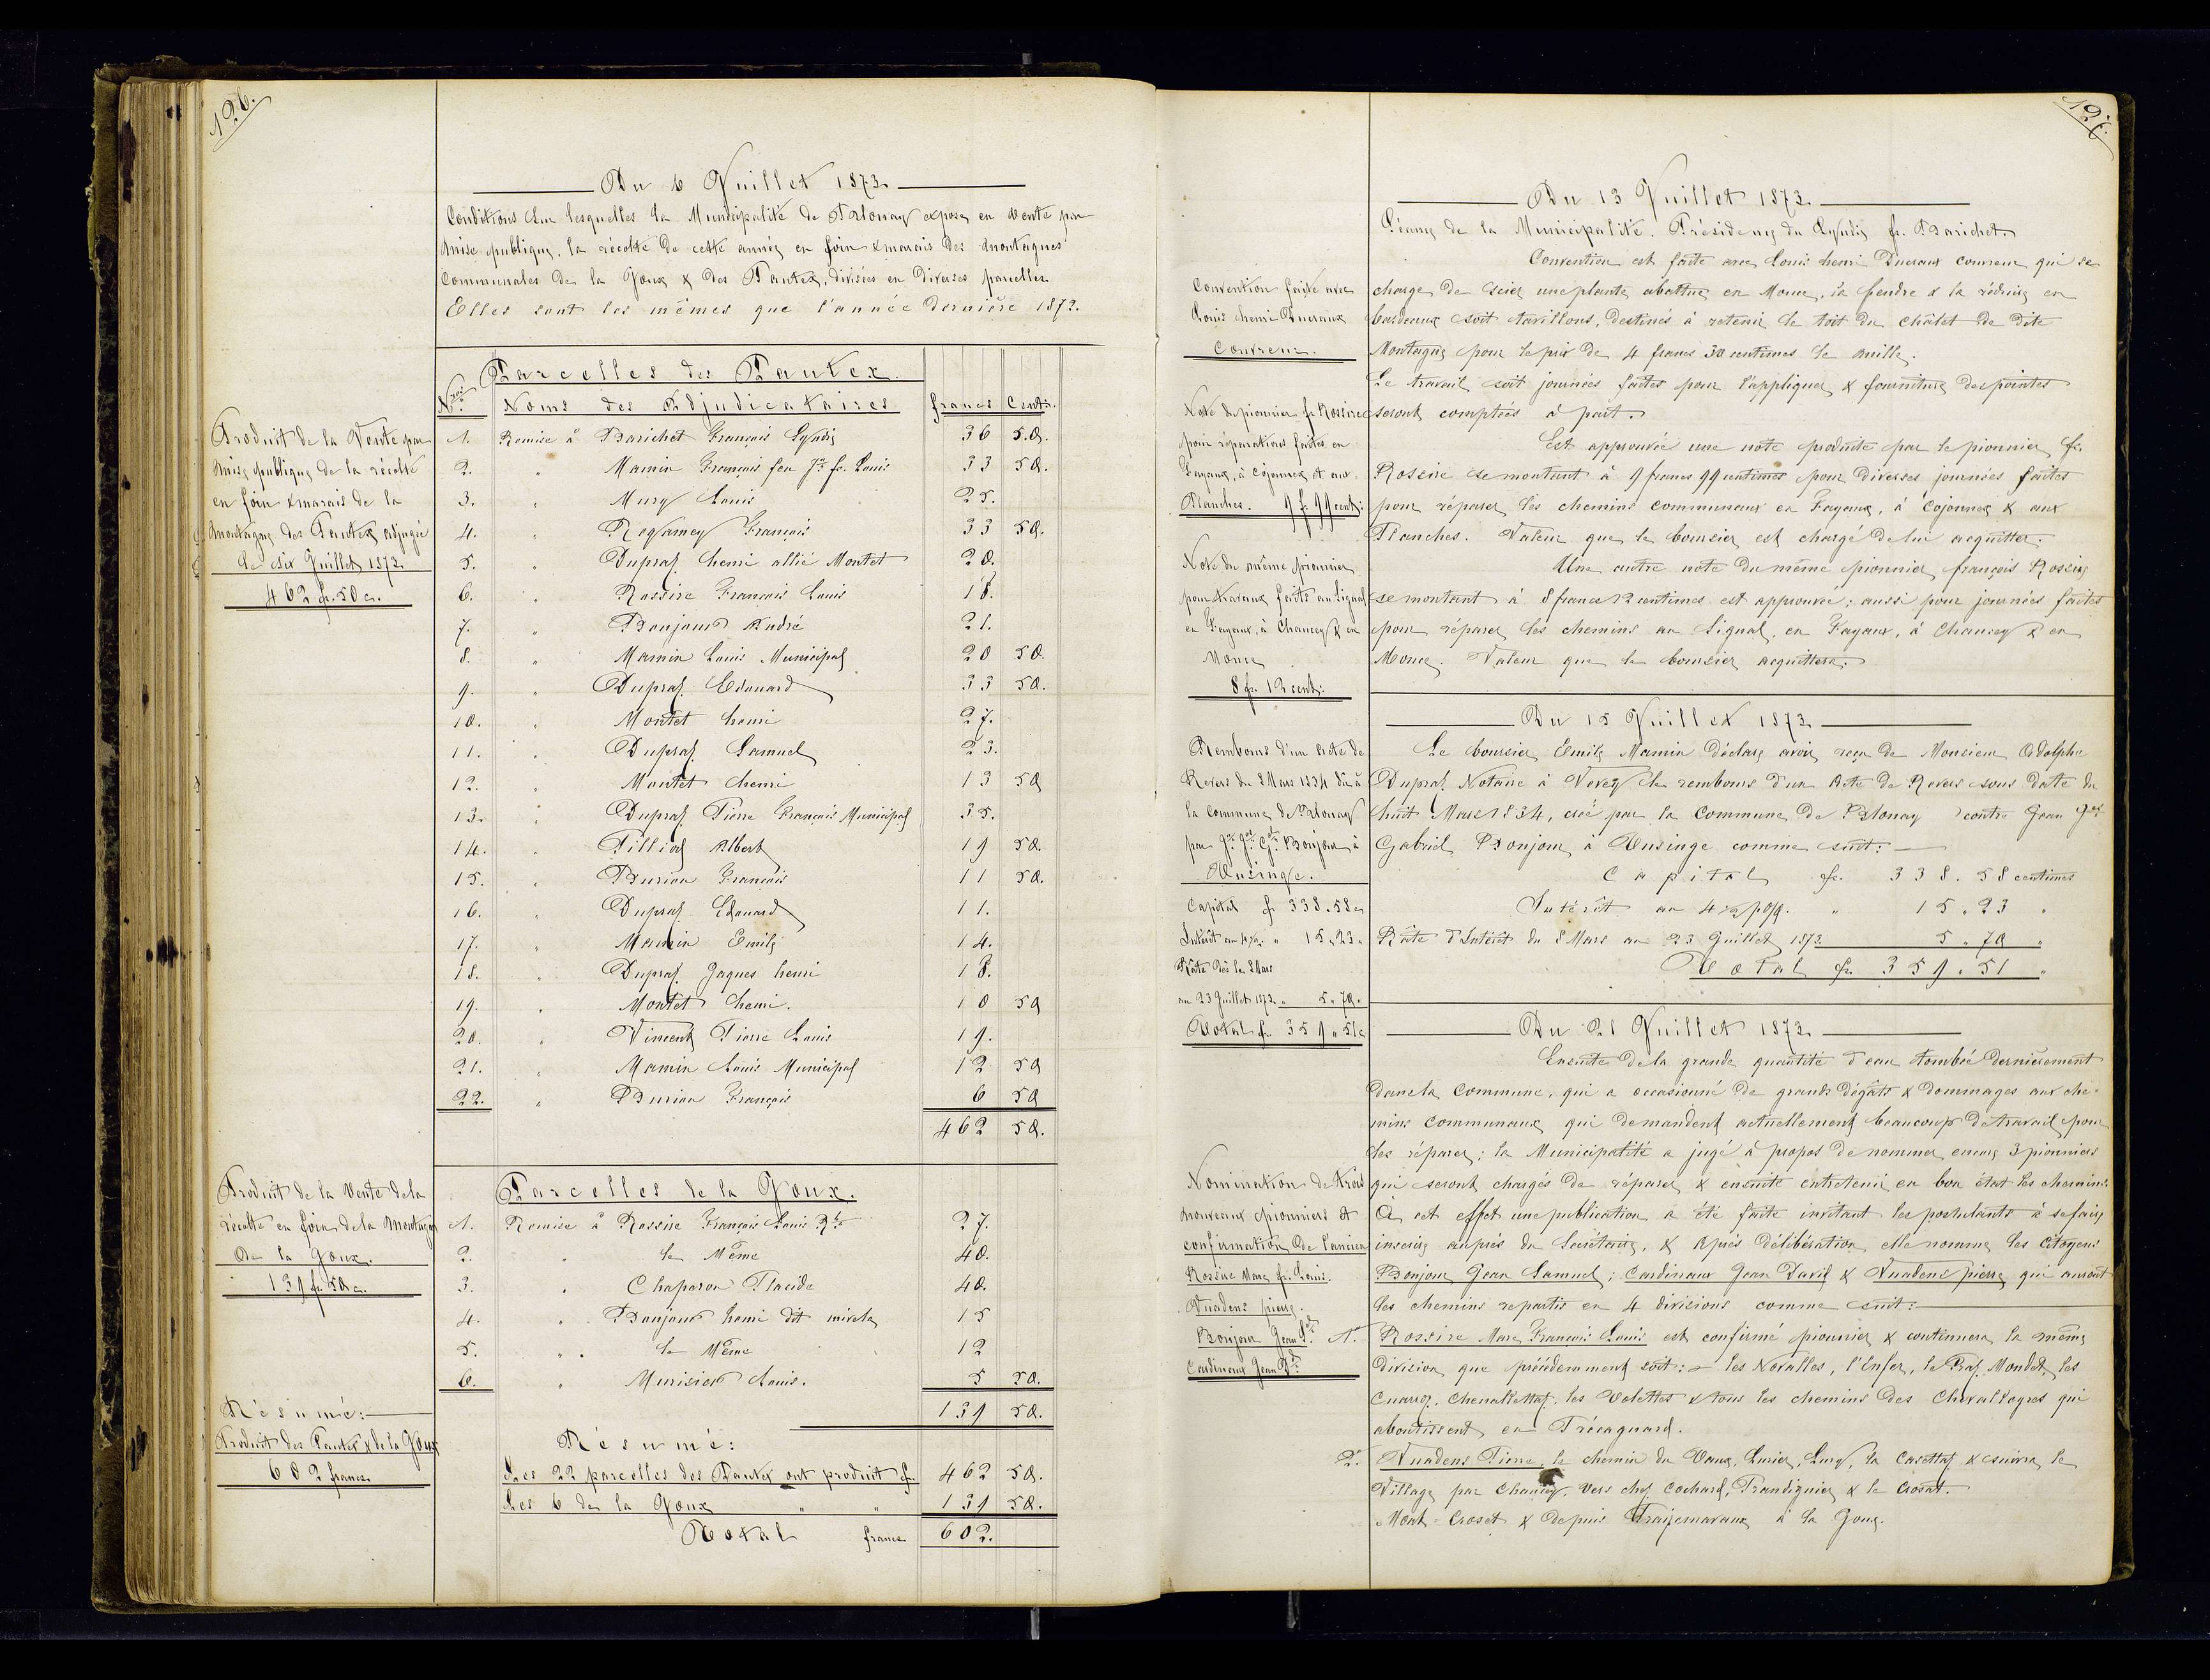 126.
Du 6 Juillet 1873.
Conditions sur lesquelles la Municipalité de Blonay expose en vente par
mise publique, la récolte de cette année en foin & marais des montagnes
Communales de la Joux & des Pautex, divisées en diverses parcelles.
Elles sont les mêmes que l'année dernière 1872.
Produit de la Vente par
mise publique de la récolte
en foin & marais de la
montagne des Pautex adjugée
le six Juillet 1873.
462 fr. 50 c.
Parcelles des Pautex.
Nros Noms des Adjudicataires francs Cents.
1. Remise à Barichet François Syndic 36 50.
2. " Mamin François feu Jn fs. Louis 33 50.
3. " Mury Louis 25.
4. " Regamey François 33 50.
5. " Dupraz henri allié Montet 20.
6. " Rossire François Louis 18.
7. " Bonjour André 21.
8. " Mamin Louis Municipal 20 50.
9. " Dupraz Edouard 33 50.
10. " Montet henri 27.
11. " Dupraz Samuel 23.
12. " Montet henri 13 50
13. " Dupraz Pierre François Municipal 35.
14. " Pilliod Albert 19 50.
15. " Burion François 11 50.
16. " Dupraz Edouard 11.
17. " Mamin Emile 14.
18. " Dupraz Jaques henri 18.
19. " Montet henri. 10 50
20. " Vincent Pierre Louis 19.
21. " Mamin Louis Municipal 12 50
22. " Burion François 6 50
462 50.
Produit de la Vente de la
récolte en foin de la Montagne
de la Joux.
139 fr. 50 c.
Parcelles de la Joux.
1. Remise à Rossire François Louis 27.
2. " le Même 40.
3. " Chaperon Placide 40.
4. " Bonjour henri dit 15
5. " le Même 12
6. " Murisier Louis. 5 50.
139 50.
Résumé:
Produit des Pautex & de la Joux
602 francs.
Résumé:
Les 22 parcelles des Pautex ont produit fr. 462 50.
Les 6 de la Joux " " 139 50.
Total francs 602.
127.
Du 13 Juillet 1873.
Séance de la Municipalité. Présidence du Syndic fs. Barichet.
Convention faite avec
Louis henri Ducraux
Couvreur.
Convention est faite avec Louis henri Ducraux couvreur qui se
charge de scier une plante abattue en Mouce, la fendre & la réduire en
bardeaux soit tavillons, destinés à retenir le toit du châlet de dite
Montagne pour le prix de 4 francs 30 centimes le mille.
Le travail soit journées faites pour l'appliquer & fourniture des pointes
seront comptées à part.
Note du pionnier fs Rossire
pour réparations faites en
Fayaux, à Cojonnex et aux
Planches. 9 f. 99 cent:
Est approuvée une note produite par le pionnier fs.
Rossire se montant à 9 francs 99 centimes pour diverses journées faites
pour réparer les chemins communaux en Fayaux, à Cojonnex & aux
Planches. Valeur que le boursier est chargé de lui acquitter.
Note du même pionnier
pour travaux faits au Signal
en Fayaux, à Chaucey & en
Mouce
8 fr. 12 cent:
Une autre note du même pionnier françois Rossire
se montant à 8 francs 12 centimes est approuvée; aussi pour journées faites
pour réparer les chemins au Signal, en Fayaux, à Chaucey & en
Mouce. Valeur que le boursier acquittera.
Du 15 Juillet 1873.
Rembours d'un Acte de
Revers du 8 Mars 1834 dû à
la Commune de Blonay
par Jn Jes Gel Bonjour à
Tusinge.
Capital fr 338.58 c
Intérêt au 4½ " 15.23.
Rate dès le 8 Mars
au 23 Juillet 1873. " 5.70.
Total fr. 359.51 c
Le boursier Emile Mamin déclare avoir reçu de Monsieur Adolphe
Dupraz Notaire à Vevey le rembours d'un Acte de Revers sous date du
huit Mars 1834, créé par la Commune de Blonay contre Jean Jes
Gabriel Bonjour à Tusinge comme suit:
Capital fr. 338.58 centimes
Intérêt au 4½ p%. " 15.23 "
Rate d'Intérêt du 8 Mars au 23 Juillet 1873 5.70 "
Total fr. 359.51 "
Du 21 Juillet 1873.
Ensuite de la grande quantité d'eau tombée dernièrement
dans la Commune, qui a occasionné de grands dégâts & dommages aux che-
mins communaux qui demandent actuellement beaucoup de travail pour
les réparer; la Municipalité a jugé à propos de nommer encore 3 pionniers
Nomination de trois
nouveaux pionniers et
confirmation de l'ancien
Rossire Marc fs. Louis.
Vuadens pierre.
Bonjour Jean Sel
Cardinaux Jean Dd
qui seront chargés de réparer & ensuite entretenir en bon état les chemins.
A cet effet une publication a été faite invitant les postulants à se faire
inscrire auprès du Secrétaire, & après délibération elle nomme les citoyens
Bonjour Jean Samuel; Cardinaux Jean David & Vuadens pierre qui auront
les chemins repartis en 4 divisions comme suit:
1. Rossire Marc François Louis est confirmé pionnier & continuera la même
division que précédemment soit: les Novalles, l'Enfer, le Praz Mondet, les
Cuaroz, Chenallettaz, les Volettes & tous les chemins des Chevalleyres qui
aboutissent en Trécagnard.
2. Vuadens Pierre, le chemin du Vaux, Lucy, la Casettaz & suivra le
Village par Chaucey, vers chez Cochard, Prandignier & le Crosat.
Mont-Croset & depuis à la Joux.